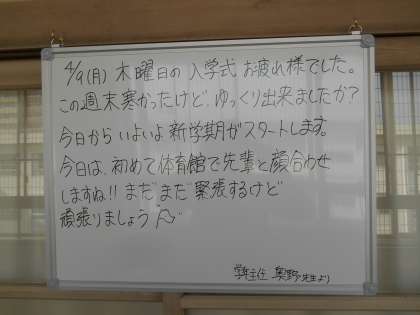 4/9(月) 木曜日の入学式お疲れ様でした。
この週末寒かったけど、ゆっくり出来ましたか?
今日からいよいよ新学期がスタートします。
今日は、初めて体育館で先輩と顔合わせ
しますね!!まだまだ緊張するけど
頑張りましょう
学年主任 奥野先生より